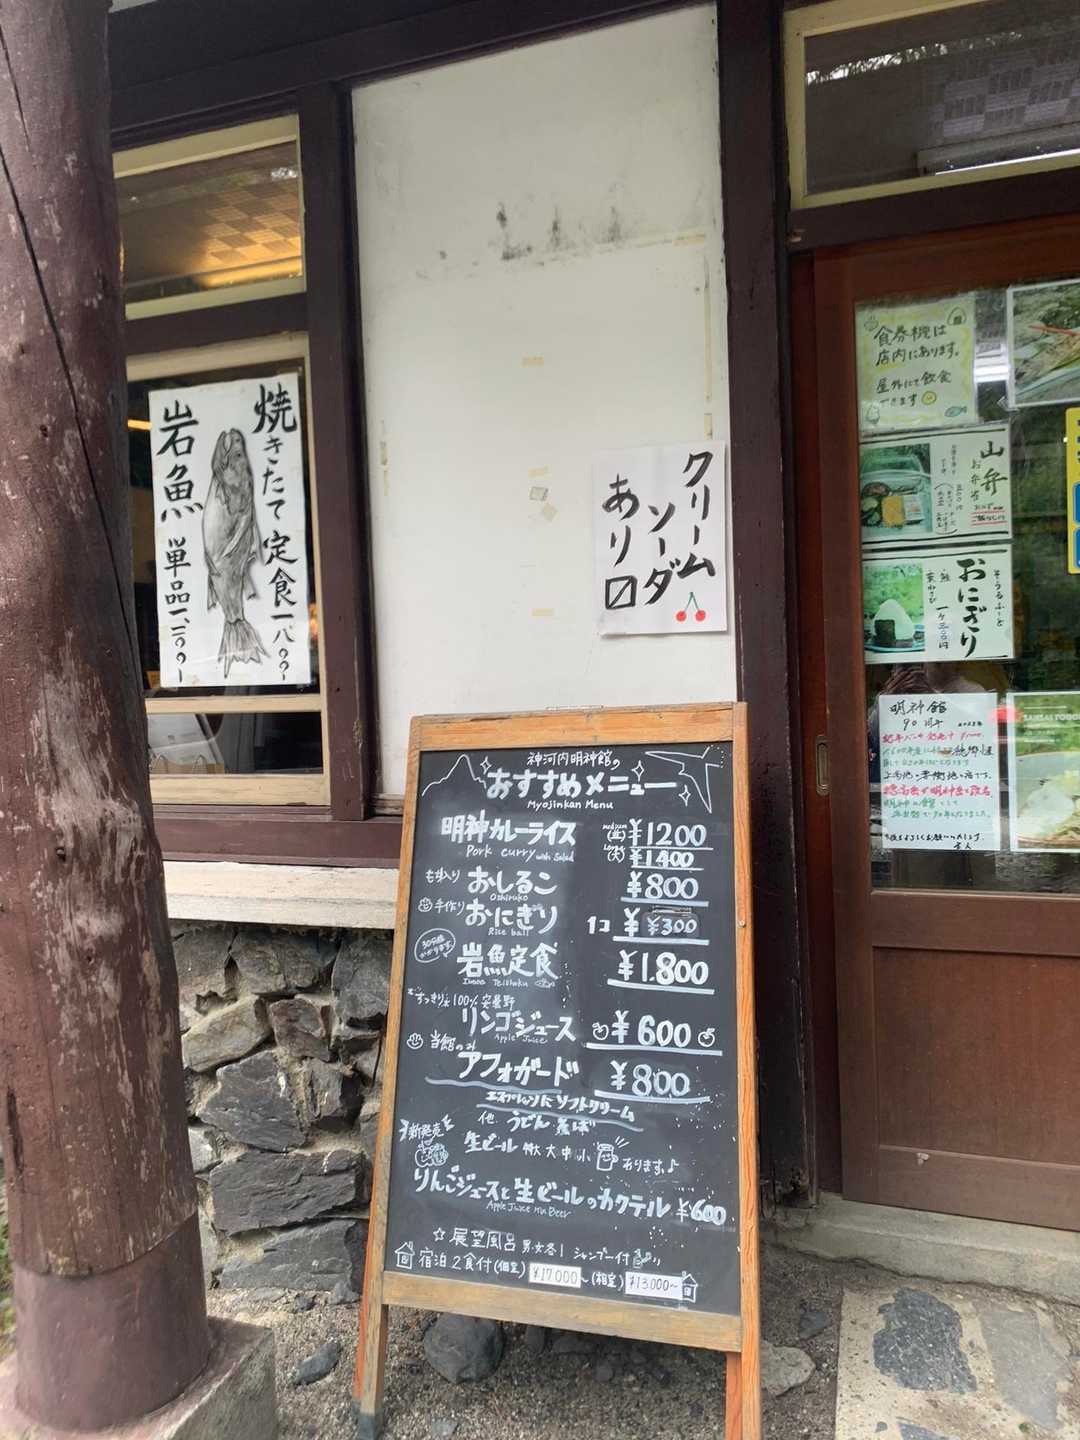 焼きたて定食一八〇〇
岩魚 単品一、二〇〇
クリーム
ソーダ
あり〼
食券機は
店内にあります。
屋外にて飲食
できます
山弁
お弁当
おにぎり
そうるふーど
・鮭
一ケ三〇〇円
明神館
90周年
神河内明神館の
おすすめメニュー
Myojinkan Menu
明神カレーライス medium (並) ¥1200
Pork curry with Salad Large (大) ¥1400
もち入り おしるこ ¥800
Oshiruko
手作り おにぎり 1コ ¥ ¥300
Rice ball
30分位
かかります。
岩魚定食 ¥1.800
Iwana Teishoku
すっきり 100% 安曇野
リンゴジュース ¥600
Apple Juice
当館のみ
アフォガード ¥800
エスプレッソに ソフトクリーム
他 うどん そば
新発売
生ビール 特大 大 中 小 あります♪
りんごジュースと生ビールのカクテル ¥600
Apple Juice mix Beer
☆ 展望風呂 男・女各1 シャンプー付
宿泊2食付 (個室) ¥17000~ (相室) ¥13000~